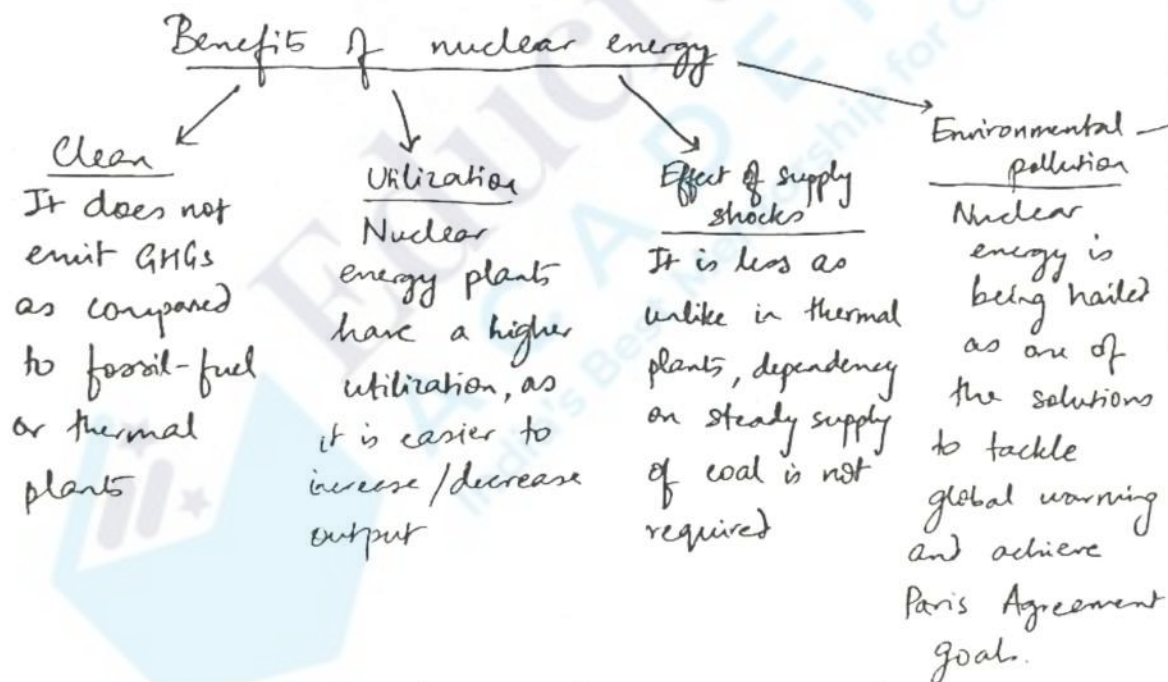 Benefits of nuclear energy
Clean
It does not
emit GHGs
as compared
to fossil-fuel
or thermal
plants
Utilization
Nuclear
energy plants
have a higher
utilization, as
it is easier to
increase/decrease
output
Effect of supply
shocks
It is less as
unlike in thermal
plants, dependency
on steady supply
of coal is not
required
Environmental
pollution
Nuclear
energy is
being hailed
as one of
the solutions
to tackle
global warming
and achieve
Paris Agreement
goals.
India's Best Mentorship for